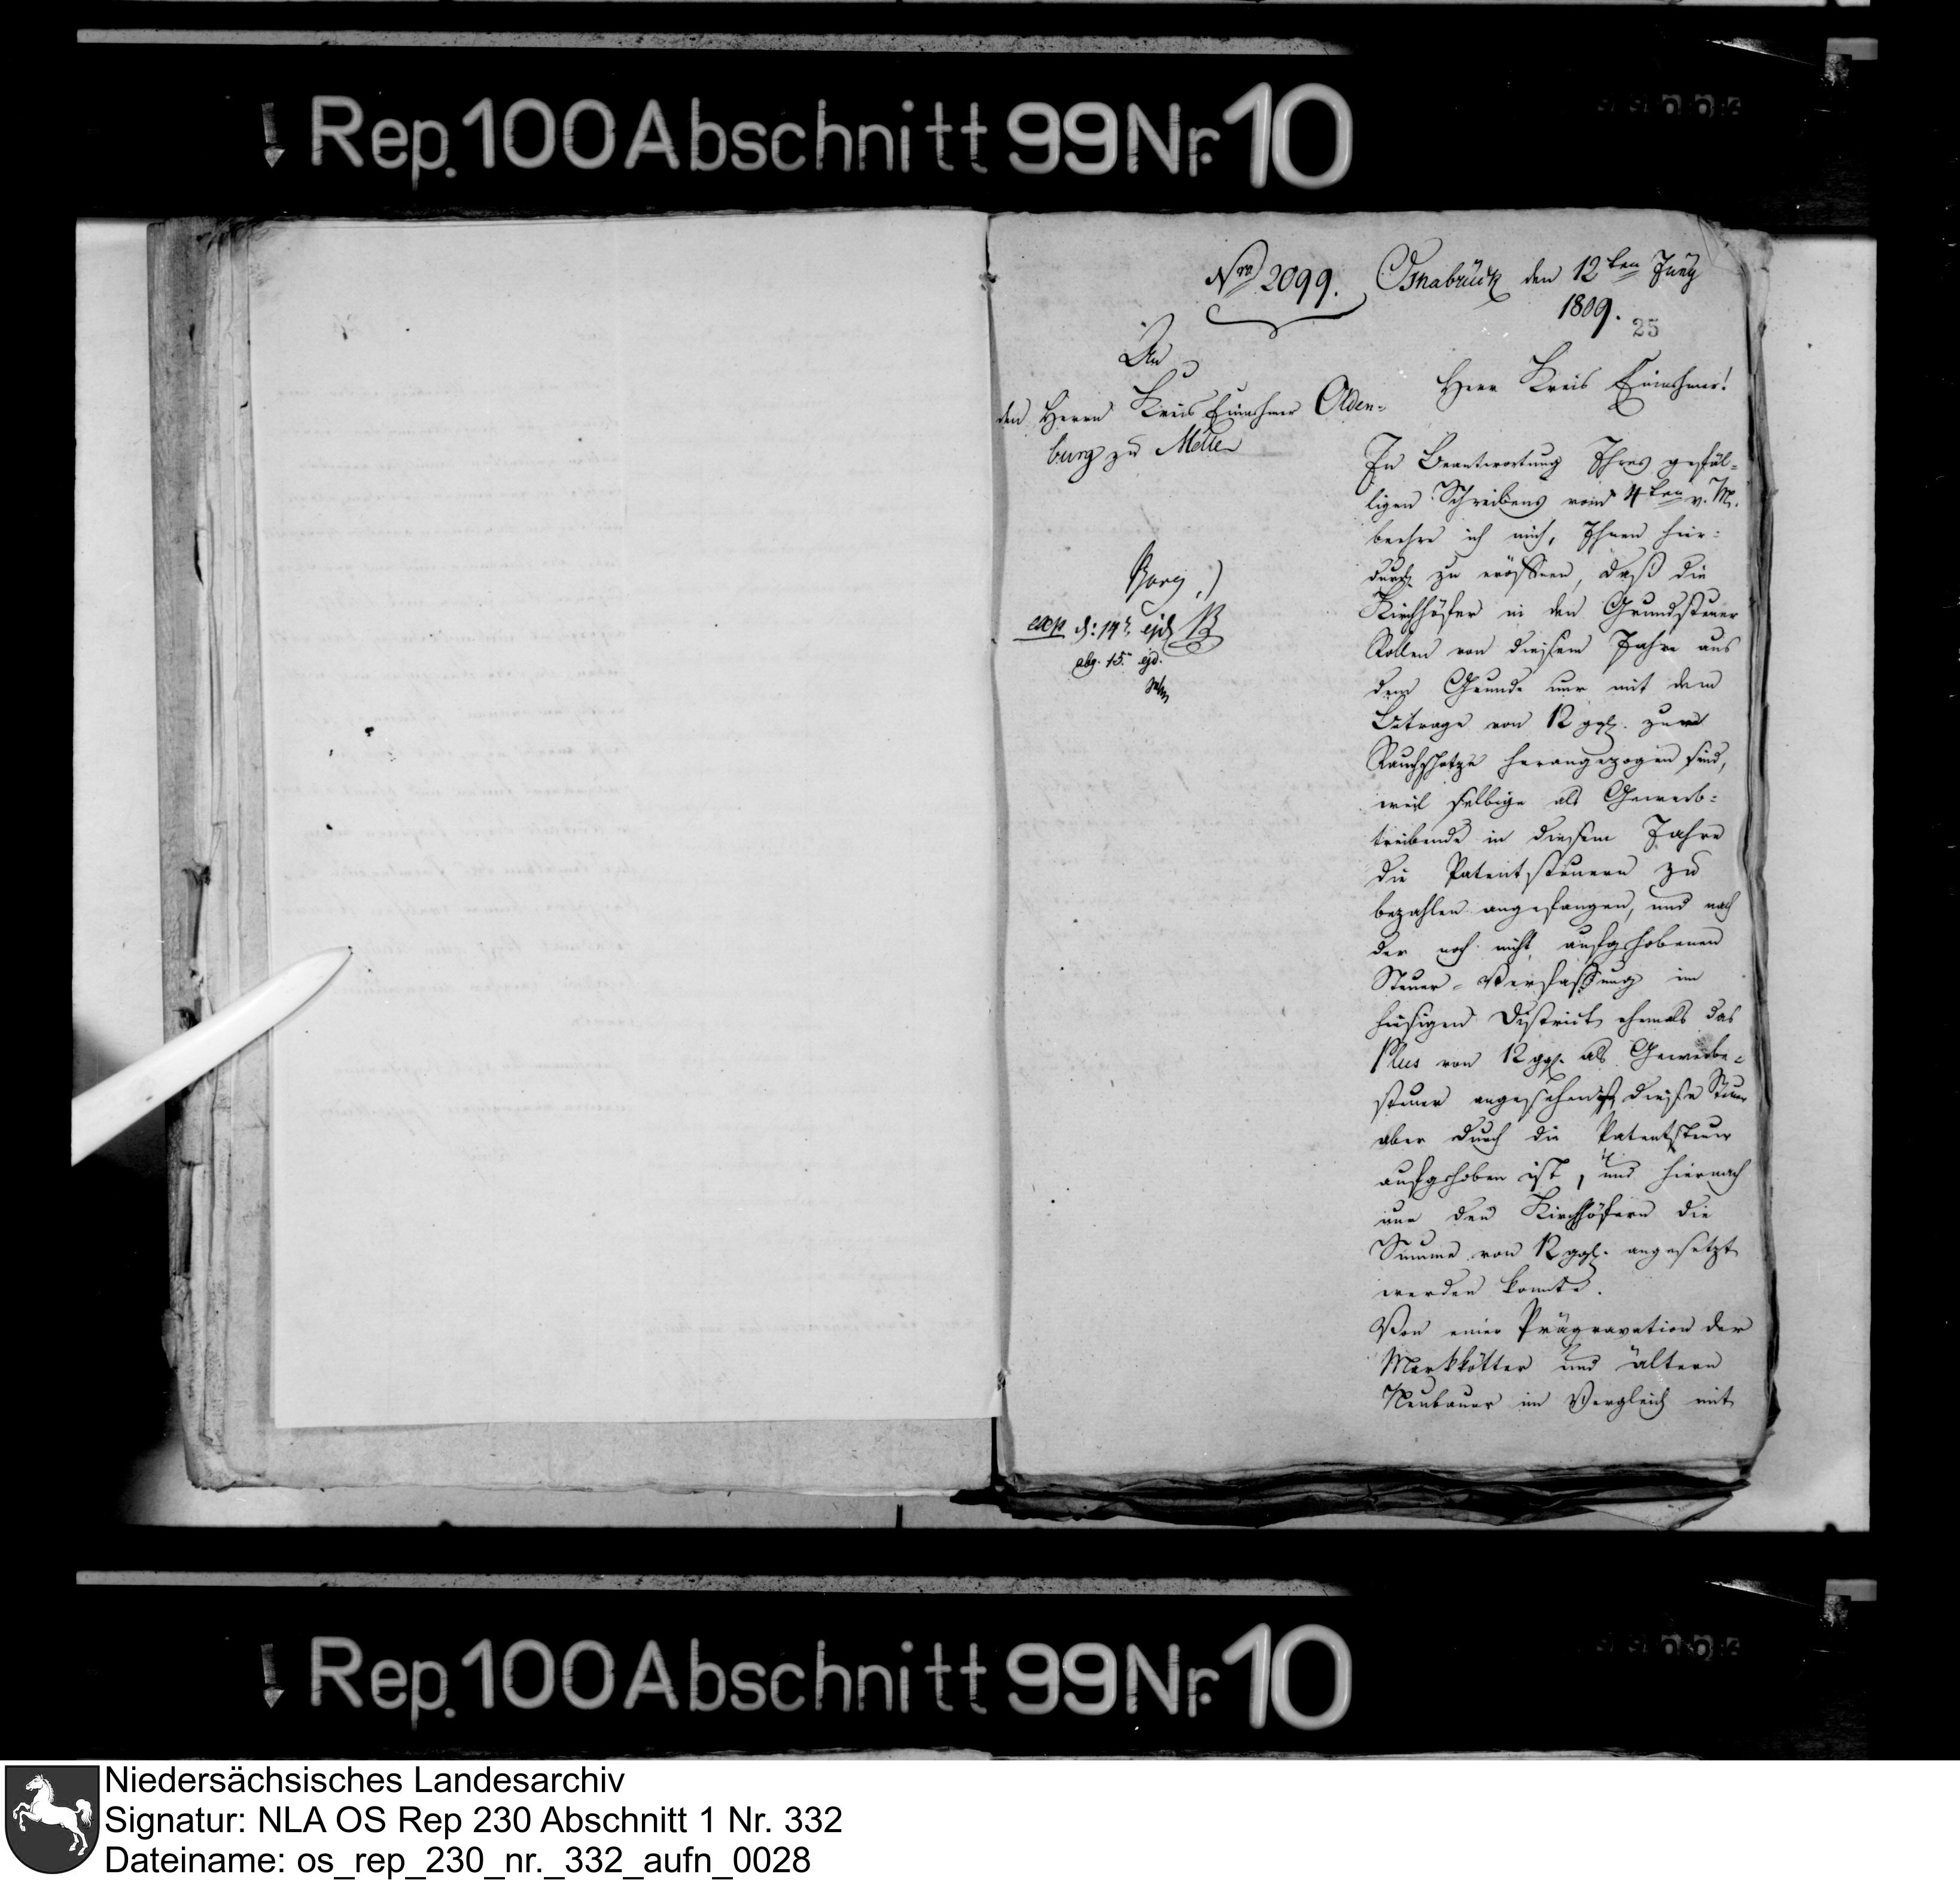 Rep. 100 Abschnitt 99 Nr. 10
Nro 2099. Osnabrück den 12ten Juny
1809.
25
An
den Herrn Kreis Einnehmer Olden-
burg zu Melle
exp d. 14t. ejd
abg. 15. ejd.
Herr Kreis Einnehmer!
In Beantwortung Ihres gefäl-
ligen Schreibens vom 4ten v. M.
beehre ich mich, Ihnen hier-
durch zu eröffnen, daß die
Kirchhöfer in den Grundsteuer
Rollen von diesem Jahre aus
dem Grunde nur mit dem
Betrage von 12 ggl. zum
Rauchschatze herangezogen sind,
weil selbige als Gewerb-
treibende in diesem Jahre
die Patentsteuern zu
bezahlen angefangen, und nach
der noch nicht aufgehobenen
Steuer-Verfassung im
hiesigen District ehemals das
Plus von 12 ggl. als Gewerbe-
steuer angesehen ist diese Steuer
aber durch die Patentsteuer
aufgehoben ist, und hiernach
nur den Kirchhöfern die
Summe von 12 ggl. angesetzt
werden konnte.
Von einer Prägravation der
Markkötter und ältern
Neubauer im Vergleich mit
Rep. 100 Abschnitt 99 Nr. 10
Niedersächsisches Landesarchiv
Signatur: NLA OS Rep 230 Abschnitt 1 Nr. 332
Dateiname: os_rep_230_nr._332_aufn_0028